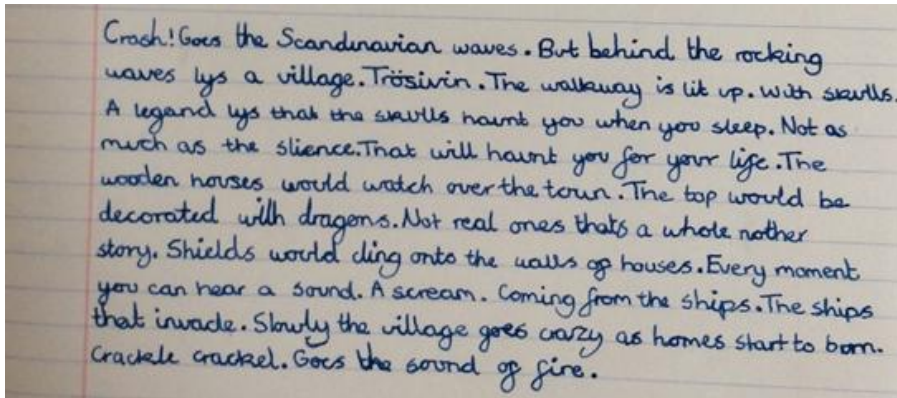 Crash! Goes the Scandinavian waves. But behind the rocking
waves lys a village. Trösivin. The walkway is lit up. With skulls.
A legand lys that the skulls haunt you when you sleep. Not as
much as the slience. That will haunt you for your life. The
wooden houses would watch over the town. The top would be
decorated with dragons. Not real ones thats a whole nother
story. Shields would cling onto the walls of houses. Every moment
you can hear a sound. A scream. Coming from the ships. The ships
that invade. Slowly the village goes crazy as homes start to born.
Crackele crackel. Goes the sound of fire.